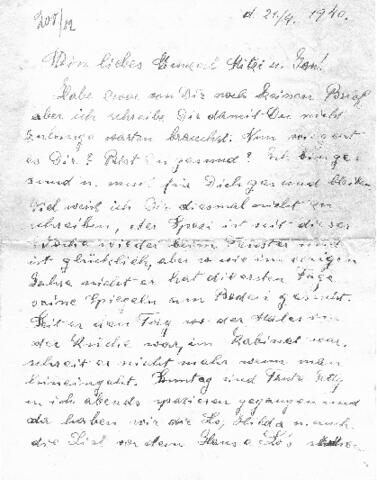 d. 21/4. 1940.
Mein liebes Mitzi u.
Habe zwar von Dir noch keinen Brief
aber ich schreibe Dir damit Du nicht
so lange warten brauchst. Nun wie geht
es Dir? Bist Du gesund? Ich bin ge-
sund u. muß für Dich gesund bleiben
Viel werd ich Dir diesmal nicht zu
schreiben, der ist seit dieser
Woche wieder beim Fenster und
ist glücklich, aber so wie im vorigen
Jahre nicht er hat die ersten Tage
seine Spiegeln am Boden gesucht.
Seit er den Tag vor der
der Küche war, im Kabinet war,
schreit er nicht mehr wenn man
hineingeht. Sonntag sind Tante
u ich abends spazieren gegangen und
da haben wir die Hilda u. auch
die vor dem Haus